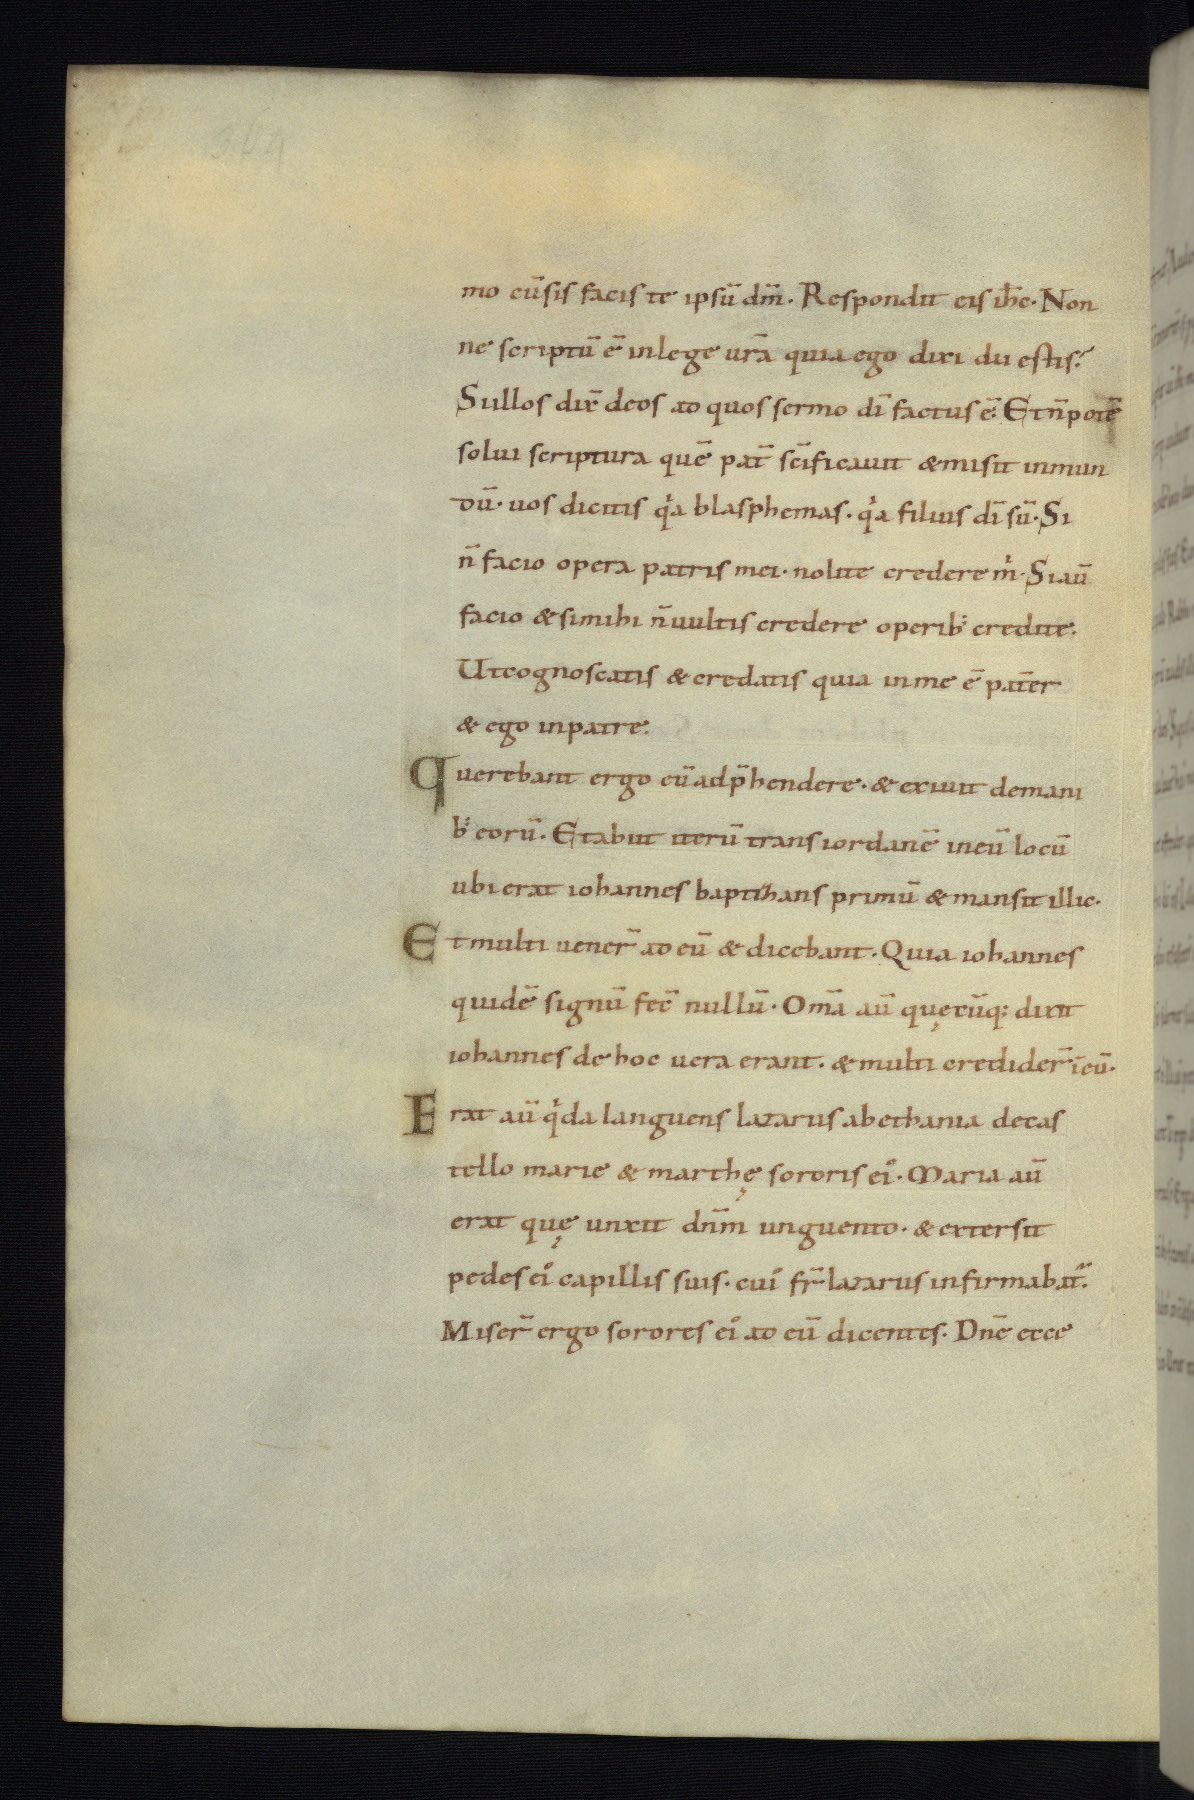 mo cū sis facis te ipsū dm̄. Respondit eis ihc̄. Non
ne scriptū ē in lege ur̄a quia ego dixi dii estis?
Si illos dix̄ deos ad quos sermo dī factus ē. Et n̄ potē
solui scriptura quē pat̄ scīficauit & misit in mun
dū. uos dicitis qͥa blasphemas. qͥa filius dī sū. Si
n̄ facio opera patris mei. nolite credere mͥ. Si aū
facio & si mihi n̄ uultis credere operib; credite.
Ut cognoscatis & credatis quia in me ē pat̄er
& ego in patre.
Querebant ergo eū adp̄hendere. & exiuit de mani
b; eorū. Et abiit iterū trans iordanē in eū locū
ubi erat iohannes baptizans primū & mansit illic.
Et multi uener̄ ad eū & dicebant. Quia iohannes
quidē signū fec̄ nullū. Om̄a aū quęcūq; dixit
iohannes de hoc uera erant. & multi credider̄ ī eū.
Erat aū qͥda languens lazarus a bethania de cas
tello marie & marthę sororis ei᾽. Maria aū
erat quę unxit dn̄m unguento. & extersit
pedes ei᾽ capillis suis. cui᾽ fr̄ lazarus infirmabat᷑.
Miser̄ ergo sorores ei᾽ ad eū dicentes. Dn̄e ecce